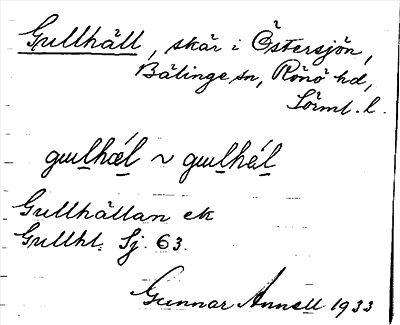 Gullhäll, skär i Östersjön,
Bälinge sn, Rönö hd,
Sörml. l.
gɯlhæ̀l ~ gɯlhál
Gullhällan ek
Gullhl. Sj. 63.
Gunnar Annell 1933